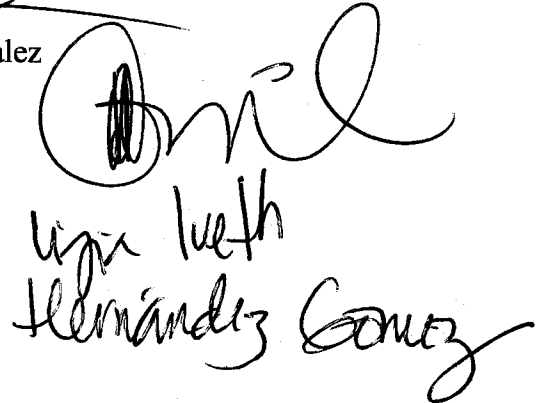 alez
Ligia Iveth
Hernández Gomez